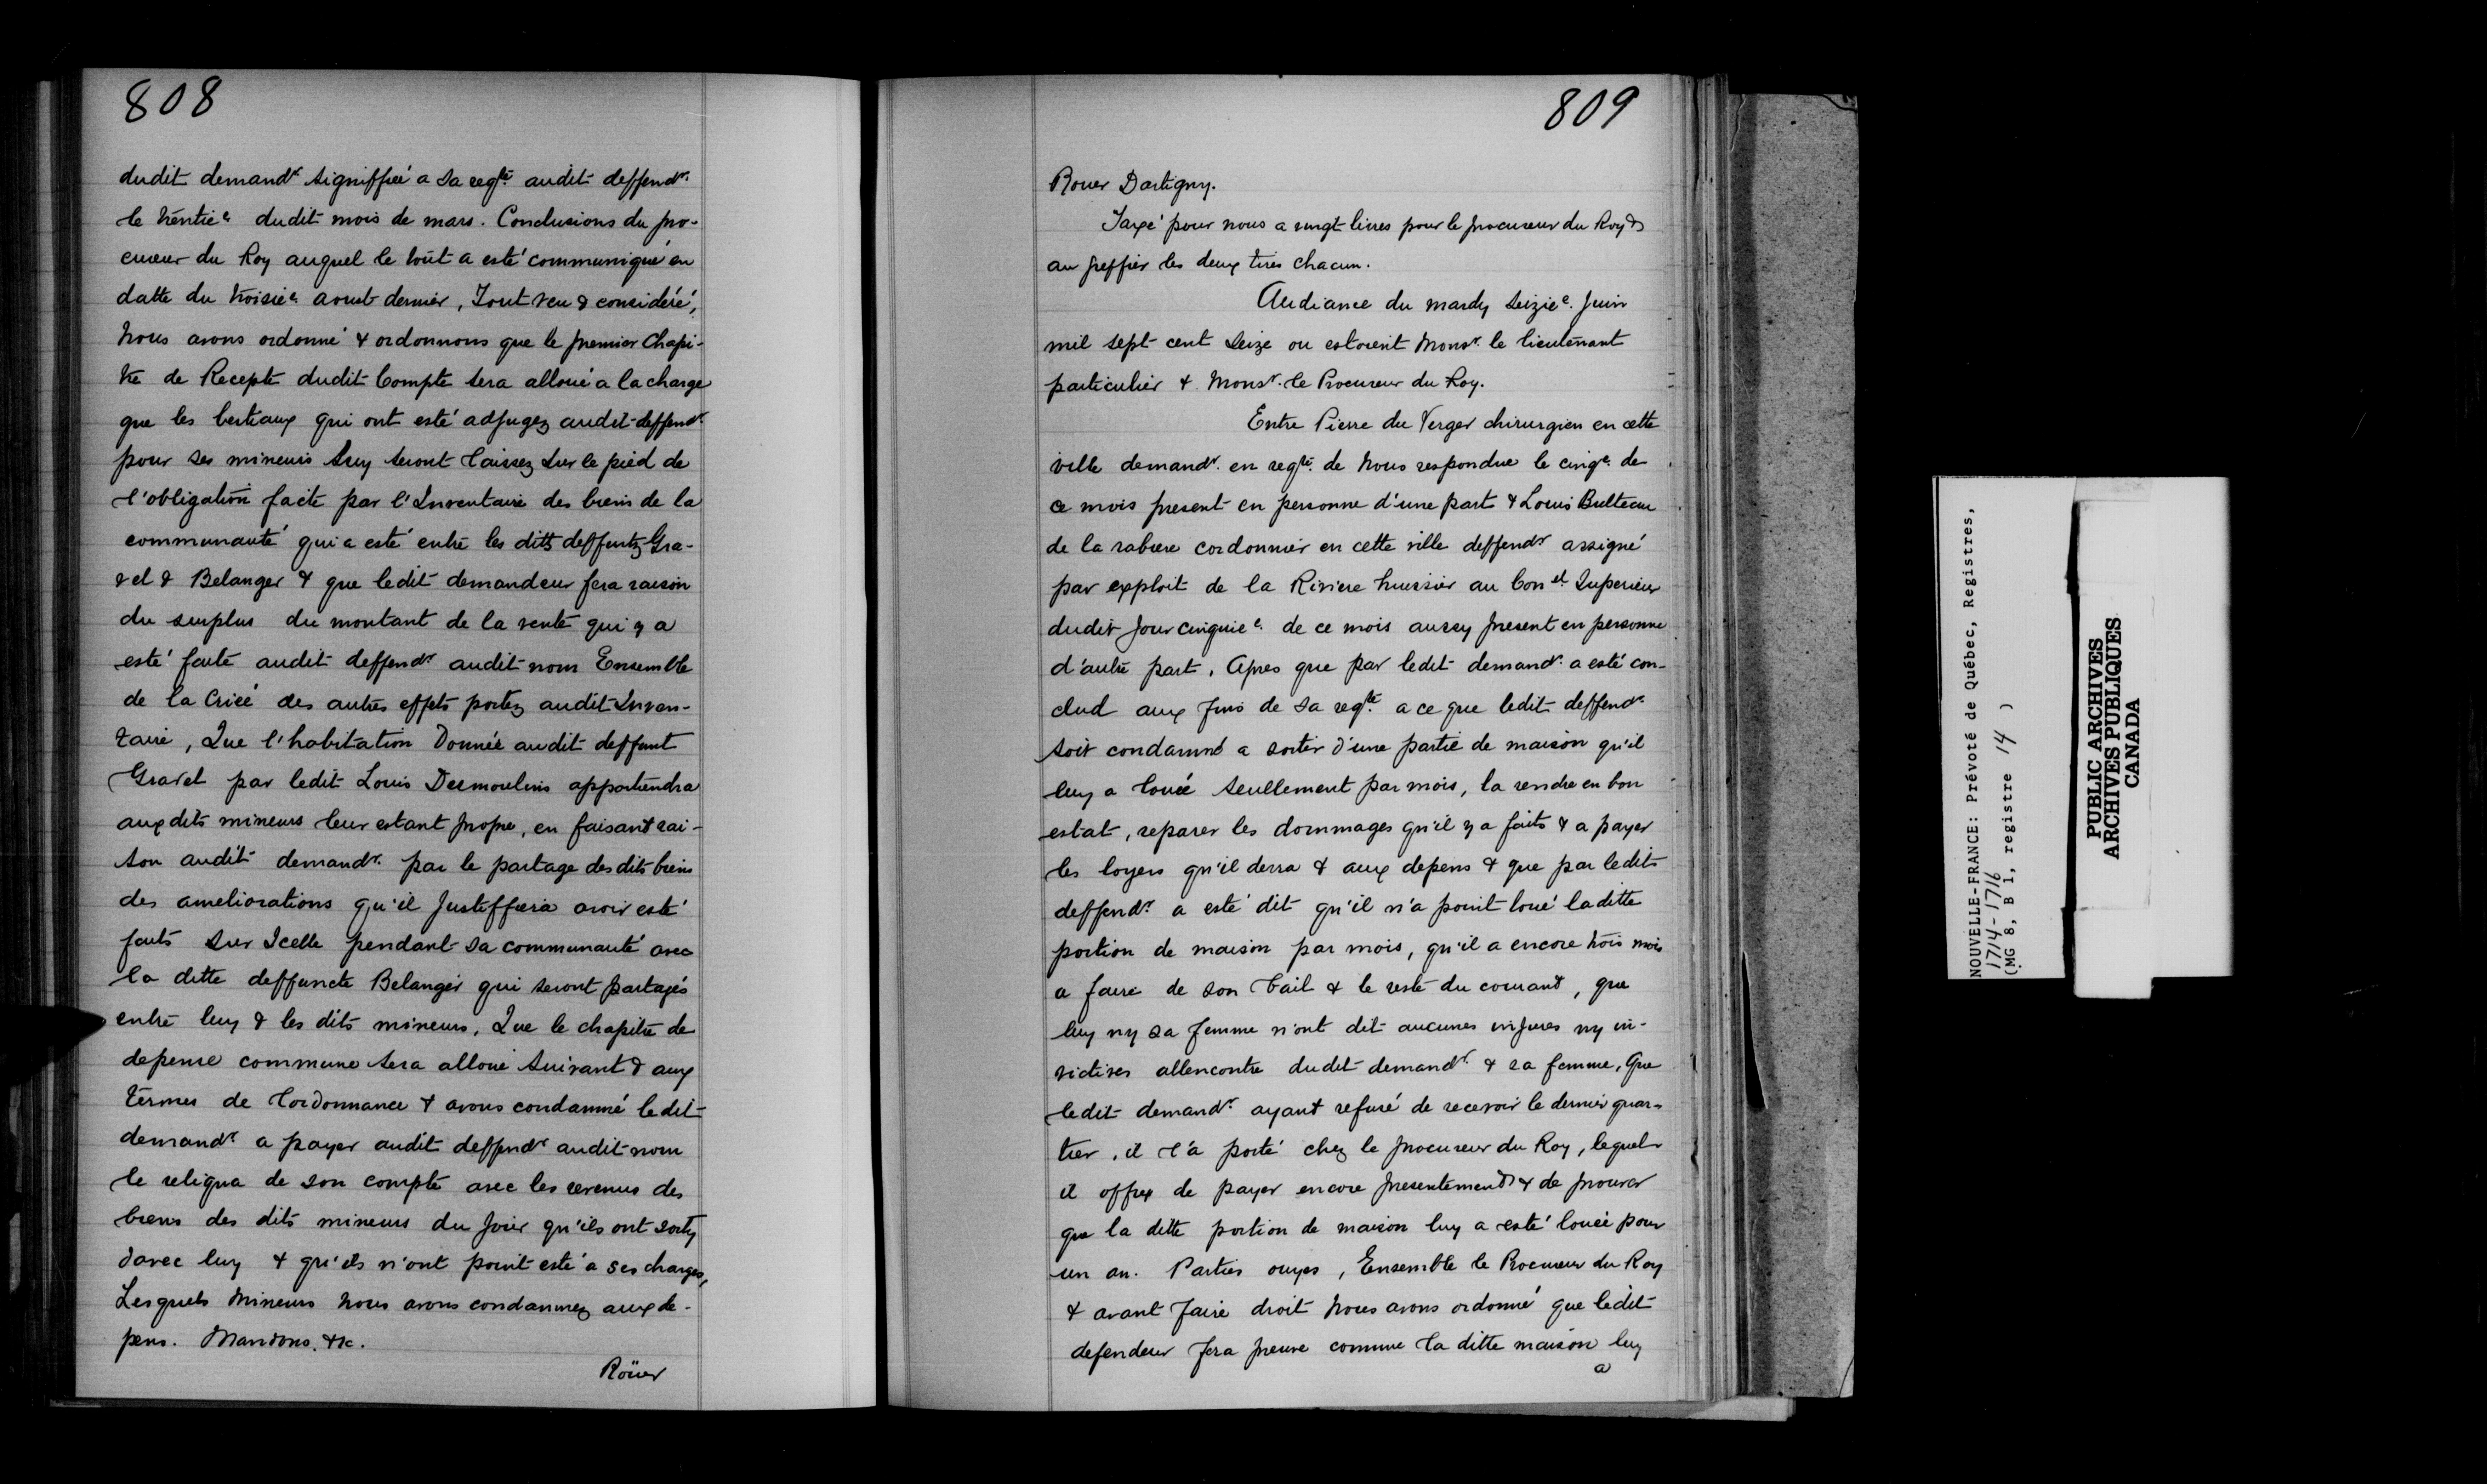 808
dudit demandr. signiffiée a sa reqte. audit deffendr.
le trentiee. dudit mois de mars. Conclusions du pro-
cureur du Roy auquel le tout a esté communiqué en
datte du troisiee. aoust dernier, Tout veu & consideré,
Nous avons ordonné & ordonnons que le premier Chapi-
tre de Recepte dudit Compte sera alloué a la charge
que les bestiaux qui ont esté adjugez audit deffendr.
pour ses mineurs luy seront laissez sur le pied de
l'obligation faite par l'Inventaire des biens de la
communauté qui a esté entre les ditts deffuntz Gra-
vel & Belanger & que ledit demandeur fera raison
du surplus du montant de la vente qui y a
esté faite audit deffendr. audit nom Ensemble
de la Criée des autres effets portez audit Inven-
taire, Que l'habitation Donnée audit deffunt
Gravel par ledit Louis Desmoulins appartiendra
aux dits mineurs leur estant propre, en faisant rai-
son audit demandr. par le partage des dits biens
des ameliorations qu'il Justiffiera avoir esté
faits sur Icelle pendant sa communauté avec
la ditte deffuncte Belanger qui seront partagés
entre luy & les dits mineurs, Que le chapitre de
depense commune sera alloué suivant & aux
termes de l'ordonnance & avons condamné ledit
demandr. a payer audit deffendr. audit nom
le reliqua de son compte avec les revenus des
biens des dits mineurs du jour qu'ils ont sorty
davec luy & qu'ils n'ont point esté a ses charges,
Lesquels Mineurs Nous avons condamnez aux de-
pens. Mandons. &c.
Roüer
809
Rouer Dartigny.
Taxé pour nous a vingt livres pour le procureur du Roy &
au greffier les deux tires chacun.
Audiance du mardy Seiziee. Juin
mil sept cent Seize ou estoient Monsr. le lieutenant
particulier & Monsr. le Procureur du Roy.
Entre Pierre du Verger chirurgien en cette
ville demandr. en reqte. de Nous respondue le cinqe. de
ce mois present en personne d'une part & Louis Bulteau
de la rabiere cordonnier en cette ville deffendr assigné
par exploit de la Riviere huissier au Conel. Superieur
dudit Jour cinquiee. de ce mois aussy present en personne
d'autre part, Apres que par ledit demandr. a esté con-
clud aux fins de sa reqte. a ce que ledit deffendr.
soit condamné a sortir d'une partie de maison qu'il
luy a louée seullement par mois, la rendre en bon
estat, reparer les dommages qu'il y a faits & a payer
les loyers qu'il devra & aux depens & que par ledit
deffendr. a esté dit qu'il n'a point loué laditte
portion de maison par mois, qu'il a encore trois mois
a faire de son bail & le reste du courant, que
luy ny sa femme n'ont dit aucunes injures ny in-
vectives allencontre dudit demandr. & sa femme, Que
ledit demandr. ayant refusé de recevoir le dernier quar-
tier, il l'a porté chez le procureur du Roy, lequel
il offre de payer encore presentement & de prouver
que la ditte portion de maison luy a esté louée pour
un an. Parties ouyes, Ensemble le Procureur du Roy
& avant faire droit Nous avons ordonné que ledit
defendeur fera preuve comme la ditte maison luy
a
NOUVELLE-FRANCE: Prévoté de Québec, Registres,
1714-1716
(MG 8, B 1, registre 14 )
PUBLIC ARCHIVES
ARCHIVES PUBLIQUES
CANADA